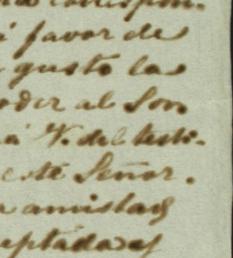 correspon-
á favor de
gusto las
poder al Son
á V. del testi-
este Señor.
amistad
eptadas